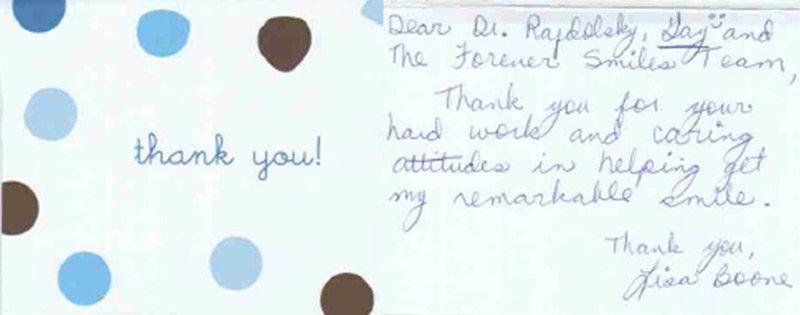 thank you!
Dear Dr. Rajdolsky, Gay and
The Forever Smiles Team,
Thank you for your
hard work and caring
attitudes in helping get
my remarkable smile.
Thank you,
Lisa Boone